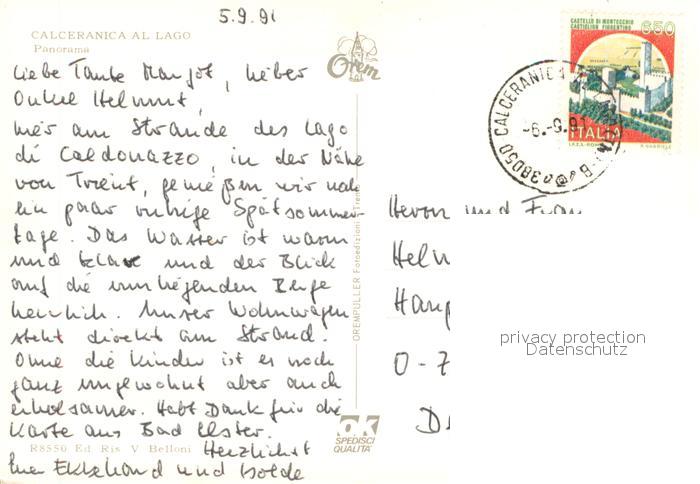 5.9.91
CALCERANICA AL LAGO
Panorama
Liebe Tante Margot, lieber
Onkel Helmut,
hier am Strande des Lago
di Caldonazzo, in der Nähe
von Trient, genießen wir noch
ein paar ruhige Spätsommer-
tage. Das Wasser ist warm
und klar und der Blick
auf die umliegenden Berge
herrlich. Unser Wohnwagen
steht direkt am Strand.
Ohne die Kinder ist es noch
ganz ungewohnt aber auch
erholsamer. Habt Dank für die
Karte aus Bad Elster.
R8550 Ed Ris V Belloni
Herzlichst
Eure Ekkehard und Isolde
Orem
OREMPULLER Fotoedizioni Trento
OK
SPEDISCI
QUALITA'
CASTELLO DI MONTECCHIO
CASTIGLION FIORENTINO
650
ITALIA
I.P.Z.S.-ROMA
38050 CALCERANICA
-6.-9.91
Herrn und Frau
Helm
Hau
O-7
D
privacy protection
Datenschutz